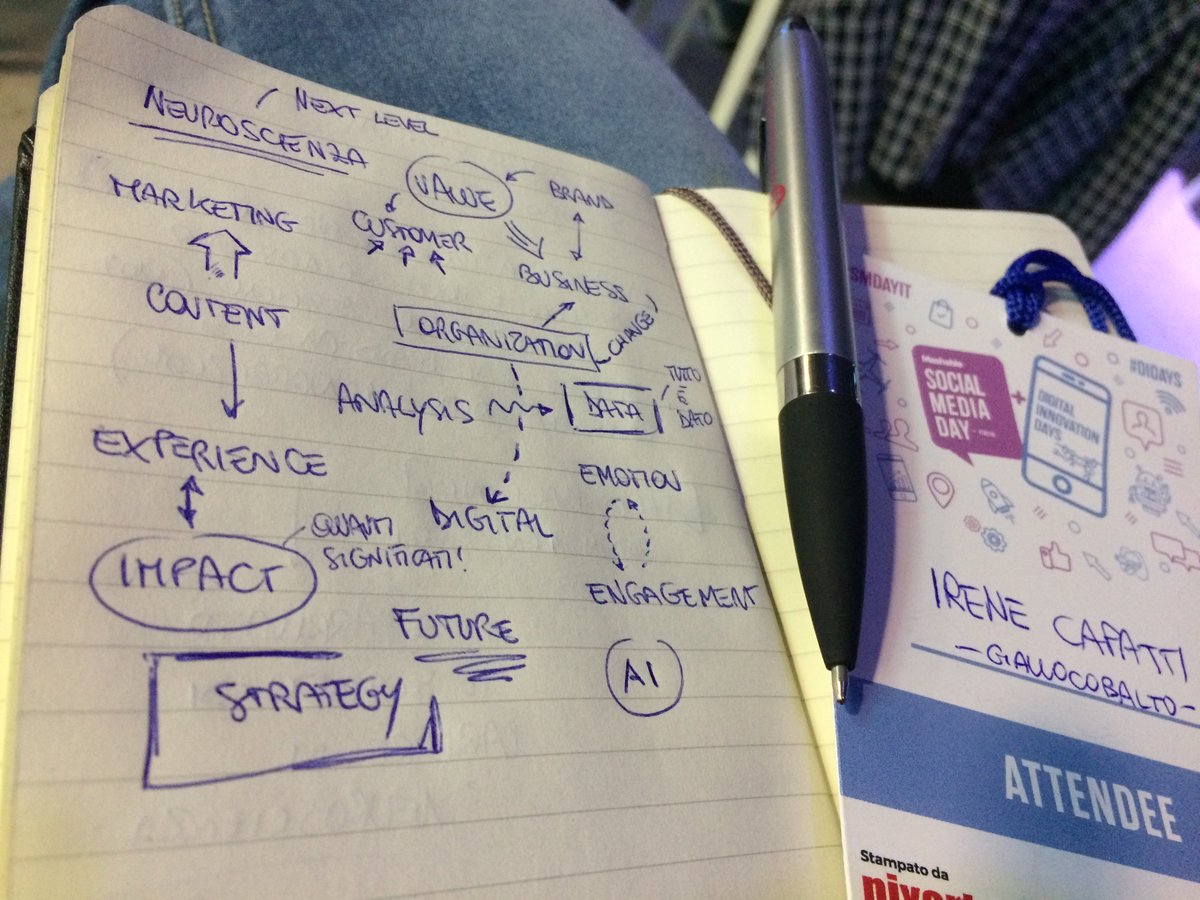 NEXT LEVEL
NEUROSCIENZA
MARKETING
VALUE
BRAND
CUSTOMER
BUSINESS
CONTENT
ORGANIZATION
CHANGE
ANALYSIS
DATA
TUTTO
È
DATO
EXPERIENCE
EMOTION
DIGITAL
IMPACT
QUANTI
SIGNIFICATI!
ENGAGEMENT
FUTURE
STRATEGY
AI
SMDAYIT
#DIDAYS
Mashable
SOCIAL
MEDIA
DAY
+
DIGITAL
INNOVATION
DAYS
IRENE CAPATTI
-GIALLOCOBALTO-
ATTENDEE
Stampato da